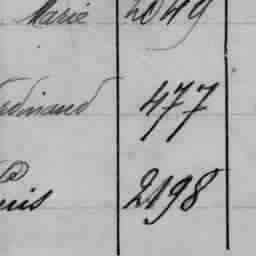 Marie 2049
erdinand 477
uis 2198